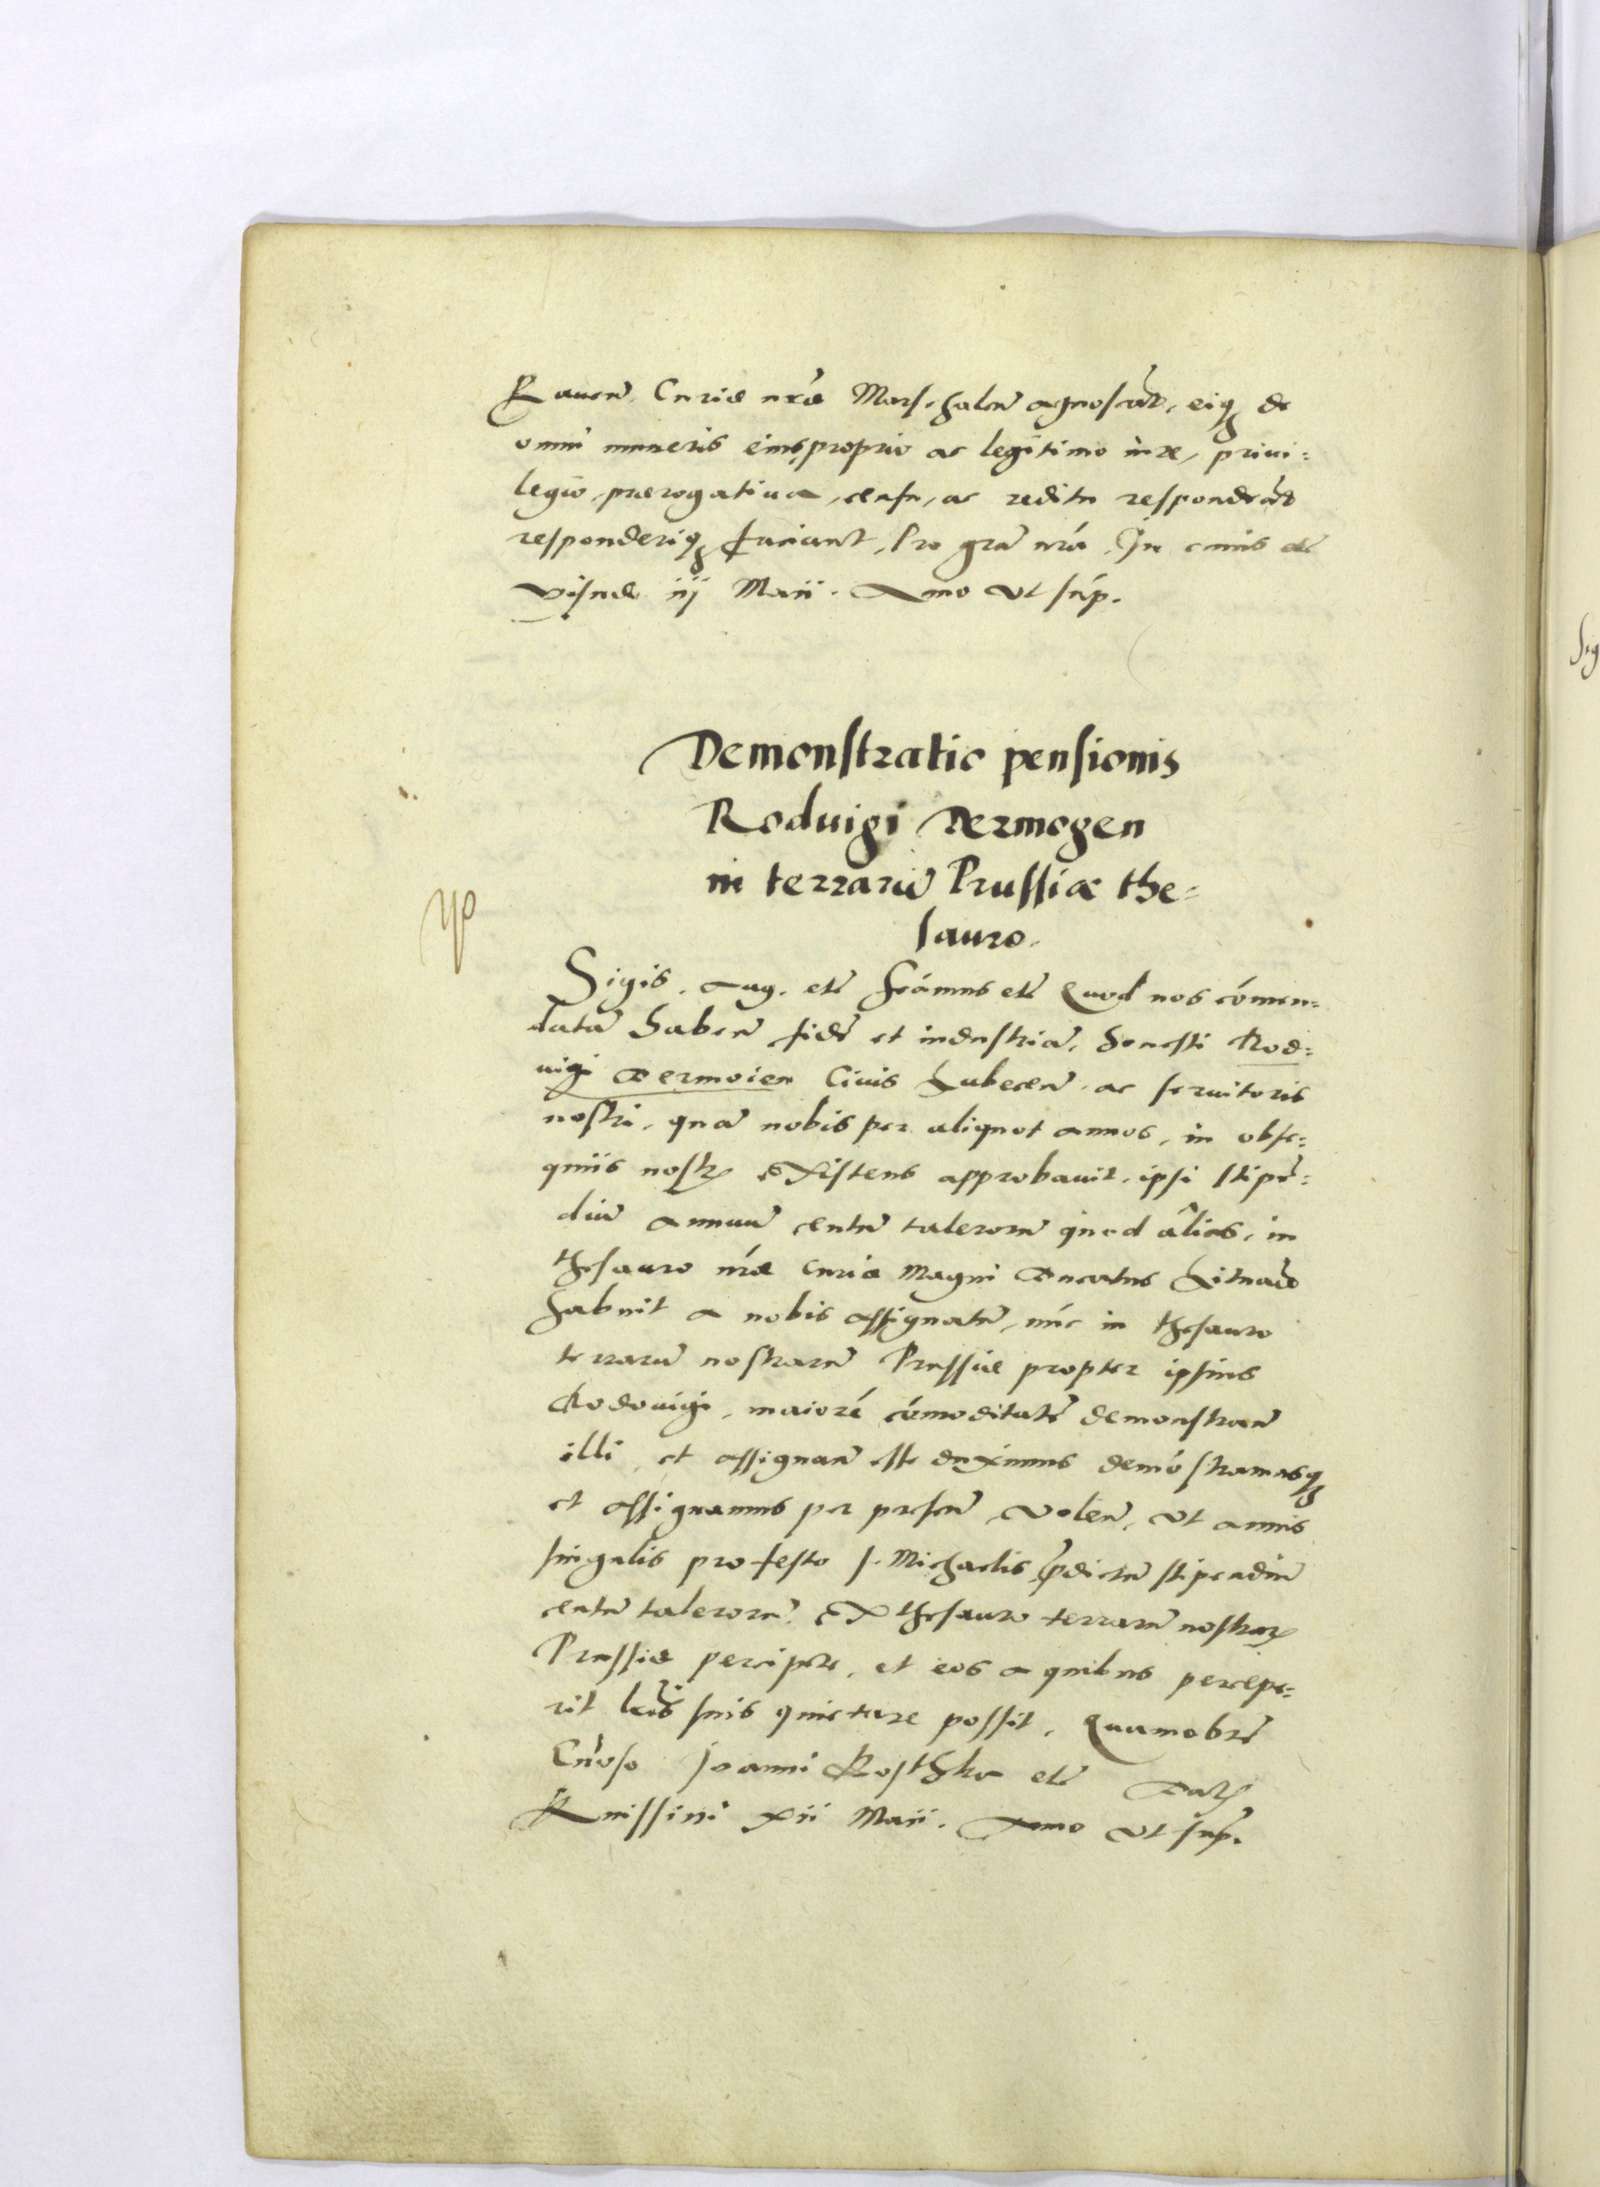 Raven. Curiæ nr̃æ Marschalcũ agnoscãt, eiq; de
omni muneris eius proprio ac legitimo iure, priui-
legio, prærogatiua, censu, ac reditu respondeãt
responderiq; faciant, Pro grã nrã. In cuius etc̃
Visnæ iij Maii. Anno vt sup̃.
Demonstratio pensionis
Roduigi Dermogen
in terrarũ Prussiæ the-
sauro.
Sigis. Aug. etc̃ scãmus etc̃ Quod nos cõmen-
datã haben̄ fidẽ et industriã, honesti Rod-
uigi Dermoien Ciuis Lubecen̄. ac seruitoris
nostri, quã nobis per aliquot annos, in obse-
quiis nostris existens approbauit, ipsi stipẽ-
diũ annuũ centũ talerorũ quod aliàs, in
thesauro nr̃æ Curiæ Magni Ducatus Lituaniæ
habuit a nobis assignatũ, nũc in thesauro
terrarũ nostrarũ Prussiæ propter ipsius
Rodovigi, maiorẽ cõmoditatẽ demonstran̄
illi, et assignan̄ esse duximus demõstramusq;
et assignamus per presen̄, Volen̄, vt annis
singulis pro festo s. Michaelis, p̃dictũ stipendiũ
centũ talerorũ ex thesauro terrarũ nostrarũ
Prussiæ percipere, et eos a quibus percepe-
rit lr̃is suis quietare possit, Quamobrẽ
Gn̄oso Joanni Kosthka etc̃ Datũ
Knissini xii Maii. Anno vt sup̃.
Sig